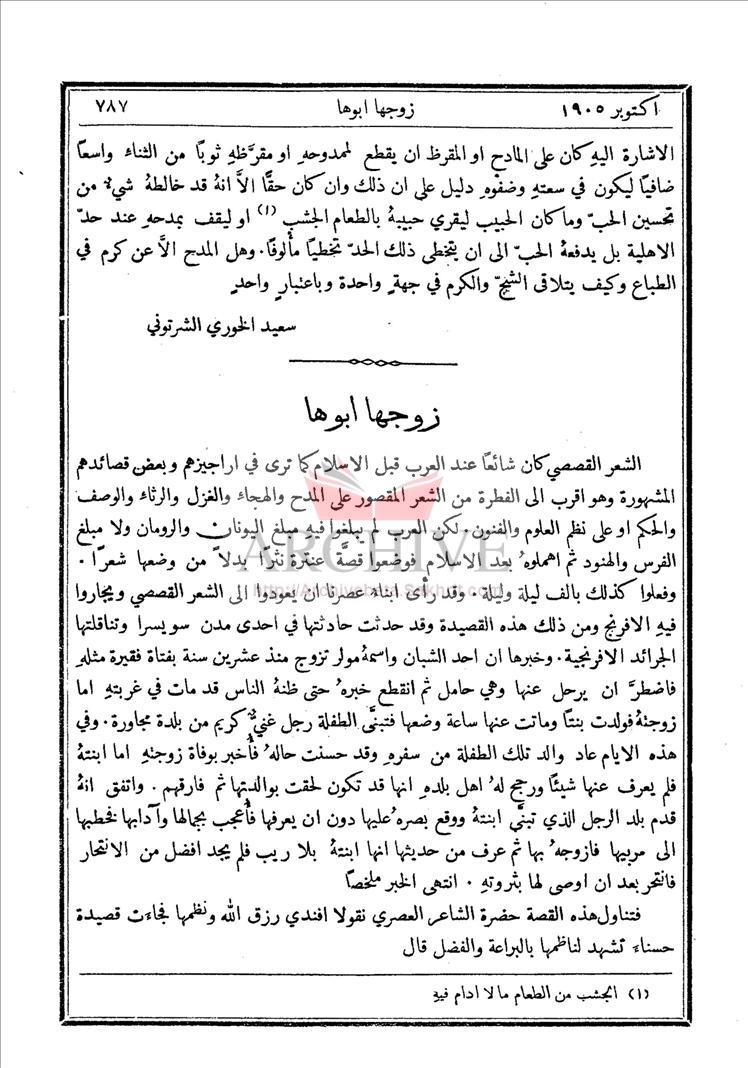 اكتوبر ١٩٠٥
زوجها ابوها
٧٨٧
الاشارة اليهِ كان على المادح او المقرظ ان يقطع لممدوحهِ او مقرَّظهِ ثوبًا من الثناء واسعًا
ضافيًا ليكون في سعتهِ وضفوهِ دليل على ان ذلك وان كان حقًّا الاَّ انهُ قد خالطهُ شيءٌ من
تحسين الحبّ وما كان الحبيب ليقري حبيبهُ بالطعام الجشب (١) او ليقف بمدحهِ عند حدّ
الاهلية بل يدفعهُ الحبّ الى ان يتخطى ذلك الحدّ تخطيًا مألوفًا. وهل المدح الاَّ عن كرم في
الطباع وكيف يتلاقى الشحّ والكرم في جهةٍ واحدة وباعتبارٍ واحدٍ
سعيد الخوري الشرتوني
زوجها ابوها
الشعر القصصي كان شائعًا عند العرب قبل الاسلام كما ترى في اراجيزهم وبعض قصائدهم
المشهورة وهو اقرب الى الفطرة من الشعر المقصور على المدح والهجاء والغزل والرثاء والوصف
والحكم او على نظم العلوم والفنون. لكن العرب لم يبلغوا فيهِ مبلغ اليونان والرومان ولا مبلغ
الفرس والهنود ثم اهملوهُ بعد الاسلام فوضعوا قصَّة عنترة نثرًا بدلاً من وضعها شعرًا.
وفعلوا كذلك بالف ليلة وليلة. وقد رأى ابناءُ عصرنا ان يعودوا الى الشعر القصصي ويجاروا
فيهِ الافرنج ومن ذلك هذه القصيدة وقد حدثت حادثتها في احدى مدن سويسرا وتناقلتها
الجرائد الافرنجية. وخبرها ان احد الشبان واسمهُ مولر تزوج منذ عشرين سنة بفتاة فقيرة مثلهِ
فاضطرَّ ان يرحل عنها وهي حامل ثم انقطع خبرهُ حتى ظنهُ الناس قد مات في غربتهِ اما
زوجتهُ فولدت بنتًا وماتت عنها ساعة وضعها فتبنَّى الطفلة رجل غنيٌّ كريم من بلدة مجاورة. وفي
هذه الايام عاد والد تلك الطفلة من سفرهِ وقد حسنت حالهُ فأُخبر بوفاة زوجتهِ اما ابنتهُ
فلم يعرف عنها شيئًا ورجح لهُ اهل بلدهِ انها قد تكون لحقت بوالدتها ثم فارقهم. واتفق انهُ
قدم بلد الرجل الذي تبنَّى ابنتهُ ووقع بصرهُ عليها دون ان يعرفها فأُعجب بجمالها وآدابها فخطبها
الى مربيها فازوجهُ بها ثم عرف من حديثها انها ابنتهُ بلا ريب فلم يجد افضل من الانتحار
فانتحر بعد ان اوصى لها بثروتهِ. انتهى الخبر ملخصًا
فتناول هذه القصة حضرة الشاعر العصري نقولا افندي رزق الله ونظمها فجاءت قصيدة
حسناءَ تشهد لناظمها بالبراعة والفضل قال
(١) الجشب من الطعام ما لا ادام فيهِ
ARCHIVE
http://Archivebeta.Sakhrit.com